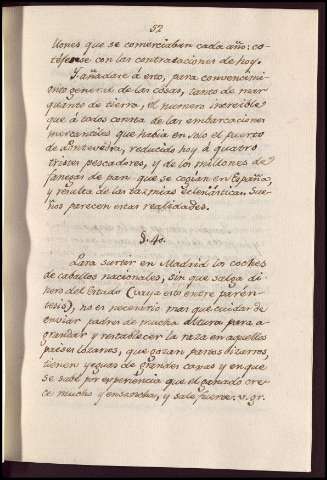 52
llones que se comerciaben cada año: co-
téjense con las contrataciones de hoy.
Y añadase á esto, para convencimi-
ento general de las cosas, tanto de mar
quanto de tierra, el numero increible
que á todos consta de las embarcaciones
mercantiles que habia en solo el puerto
de Pontevedra, reducido hoy á quatro
tristes pescadores, y de los millones de
fanegas de pan que se cogian en España,
y resulta de las tazmias Eclesiásticas. Sue-
ños parecen estas realidades.
§. 40.
Para surtir en Madrid los coches
de caballos nacionales, sin que salga di-
nero del Estado (vaya esto entre parén-
tesis), no es necesario mas que cuidar de
enviar padres de mucha altura para a-
grandar y restablecer la raza en aquellos
paises lozanos, que gozan pastos bizarros,
tienen yeguas de grandes caxas y en que
se sabe por experiencia que el ganado cre-
ce mucho y ensancha, y sale fuerte. v. gr.